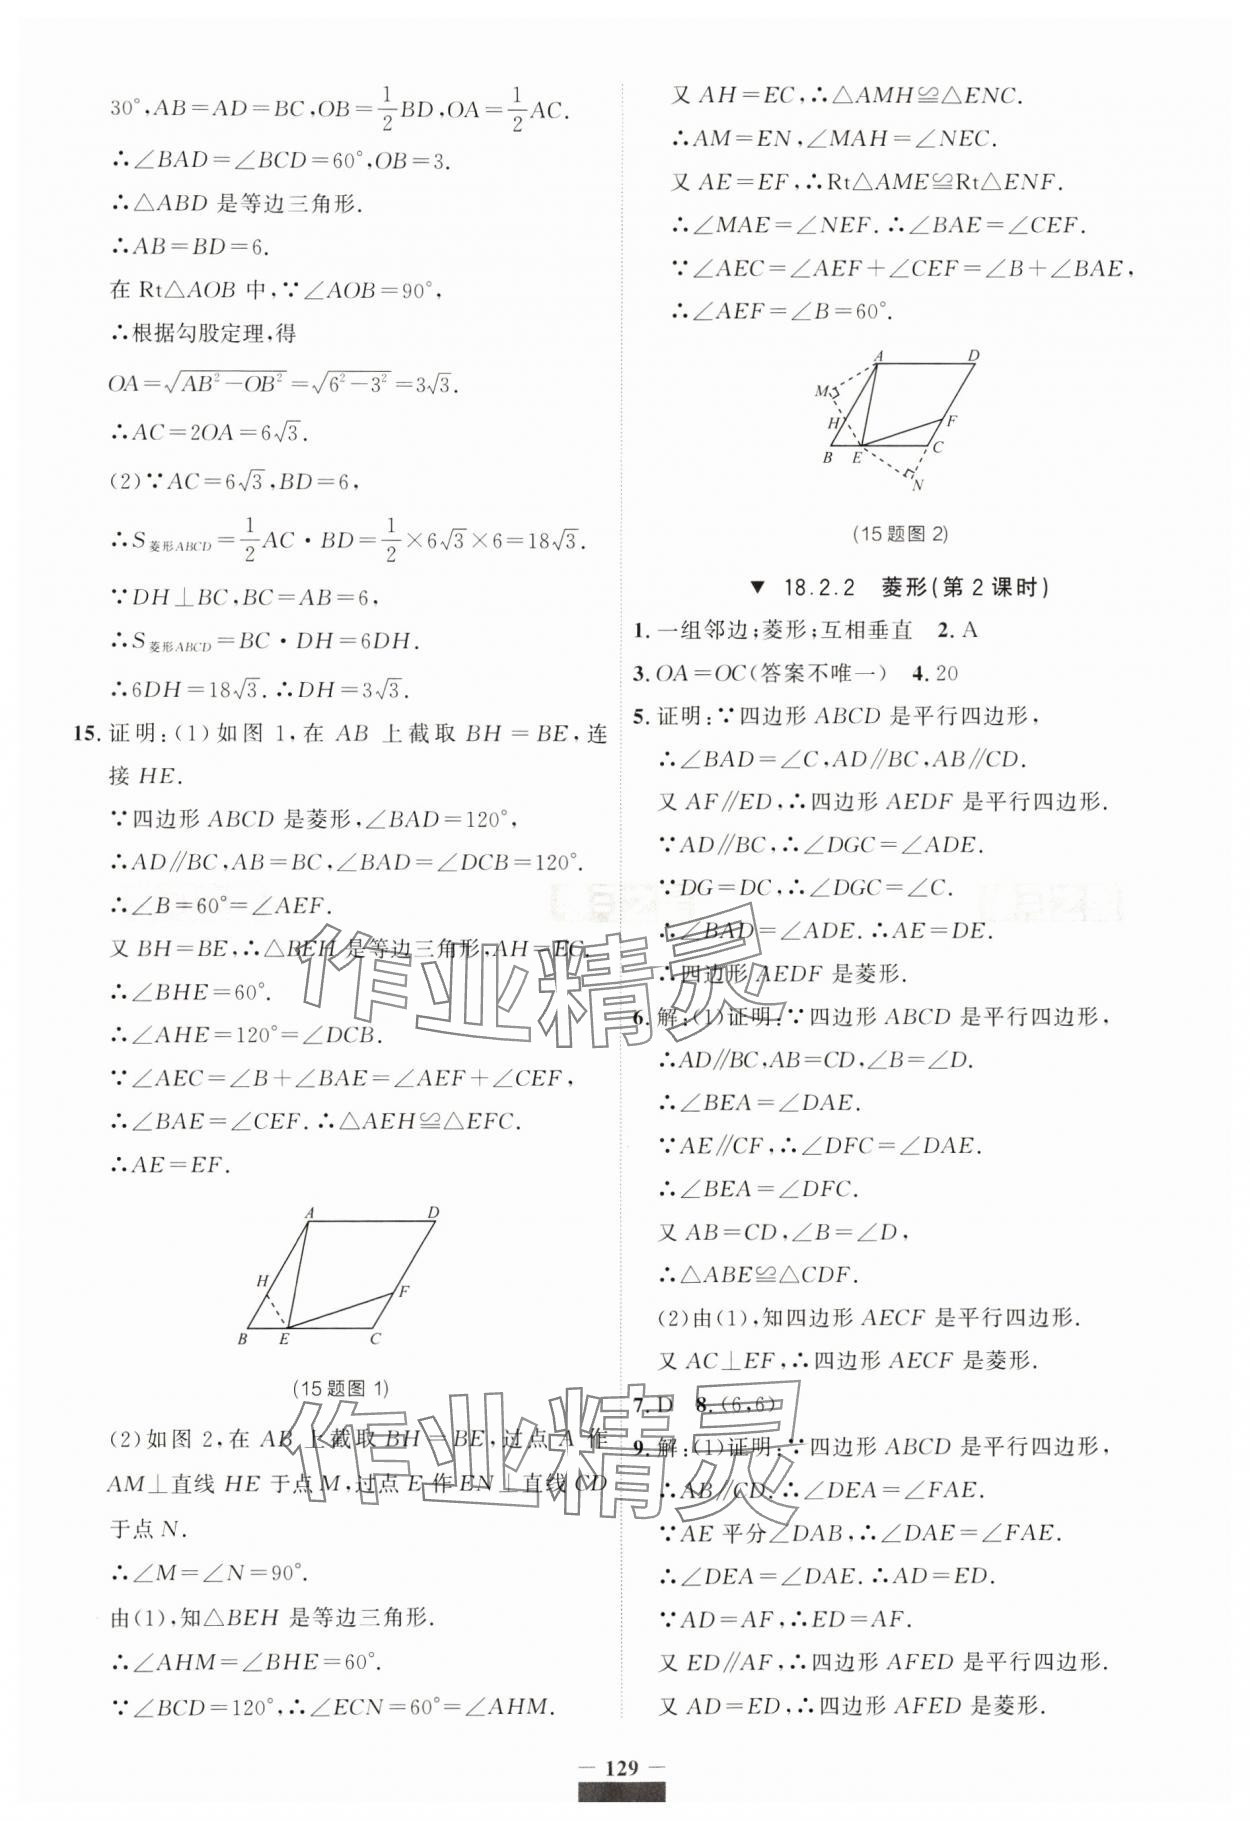 30°,AB=AD=BC,OB=1/2BD,OA=1/2AC.
∴∠BAD=∠BCD=60°,OB=3.
∴△ABD 是等边三角形.
∴AB=BD=6.
在 Rt△AOB 中,∵∠AOB=90°,
∴根据勾股定理,得
OA=√(AB²-OB²)=√(6²-3²)=3√3.
∴AC=2OA=6√3.
(2)∵AC=6√3,BD=6,
∴S菱形ABCD=1/2AC·BD=1/2×6√3×6=18√3.
∵DH⊥BC,BC=AB=6,
∴S菱形ABCD=BC·DH=6DH.
∴6DH=18√3.∴DH=3√3.
15.证明:(1)如图 1,在 AB 上截取 BH=BE,连
接 HE.
∵四边形 ABCD 是菱形,∠BAD=120°,
∴AD∥BC,AB=BC,∠BAD=∠DCB=120°.
∴∠B=60°=∠AEF.
又 BH=BE,∴△BEH 是等边三角形,AH=EC.
∴∠BHE=60°.
∴∠AHE=120°=∠DCB.
∵∠AEC=∠B+∠BAE=∠AEF+∠CEF,
∴∠BAE=∠CEF.∴△AEH≌△EFC.
∴AE=EF.
A D
H
F
B E C
(15题图 1)
(2)如图 2,在 AB 上截取 BH=BE,过点 A 作
AM⊥直线 HE 于点 M,过点 E 作 EN⊥直线 CD
于点 N.
∴∠M=∠N=90°.
由(1),知△BEH 是等边三角形.
∴∠AHM=∠BHE=60°.
∵∠BCD=120°,∴∠ECN=60°=∠AHM.
又 AH=EC,∴△AMH≌△ENC.
∴AM=EN,∠MAH=∠NEC.
又 AE=EF,∴Rt△AME≌Rt△ENF.
∴∠MAE=∠NEF.∴∠BAE=∠CEF.
∵∠AEC=∠AEF+∠CEF=∠B+∠BAE,
∴∠AEF=∠B=60°.
A D
M
H F
B E C
N
(15题图 2)
▼ 18.2.2 菱形(第 2 课时)
1.一组邻边;菱形;互相垂直 2.A
3.OA=OC(答案不唯一) 4.20
5.证明:∵四边形 ABCD 是平行四边形,
∴∠BAD=∠C,AD∥BC,AB∥CD.
又 AF∥ED,∴四边形 AEDF 是平行四边形.
∵AD∥BC,∴∠DGC=∠ADE.
∵DG=DC,∴∠DGC=∠C.
∴∠BAD=∠ADE.∴AE=DE.
∴四边形 AEDF 是菱形.
6.解:(1)证明:∵四边形 ABCD 是平行四边形,
∴AD∥BC,AB=CD,∠B=∠D.
∴∠BEA=∠DAE.
∵AE∥CF,∴∠DFC=∠DAE.
∴∠BEA=∠DFC.
又 AB=CD,∠B=∠D,
∴△ABE≌△CDF.
(2)由(1),知四边形 AECF 是平行四边形.
又 AC⊥EF,∴四边形 AECF 是菱形.
7.D 8.(6,6)
9.解:(1)证明:∵四边形 ABCD 是平行四边形,
∴AB∥CD.∴∠DEA=∠FAE.
∵AE 平分∠DAB,∴∠DAE=∠FAE.
∴∠DEA=∠DAE.∴AD=ED.
∵AD=AF,∴ED=AF.
又 ED∥AF,∴四边形 AFED 是平行四边形.
又 AD=ED,∴四边形 AFED 是菱形.
作业精灵
作业精灵
— 129 —